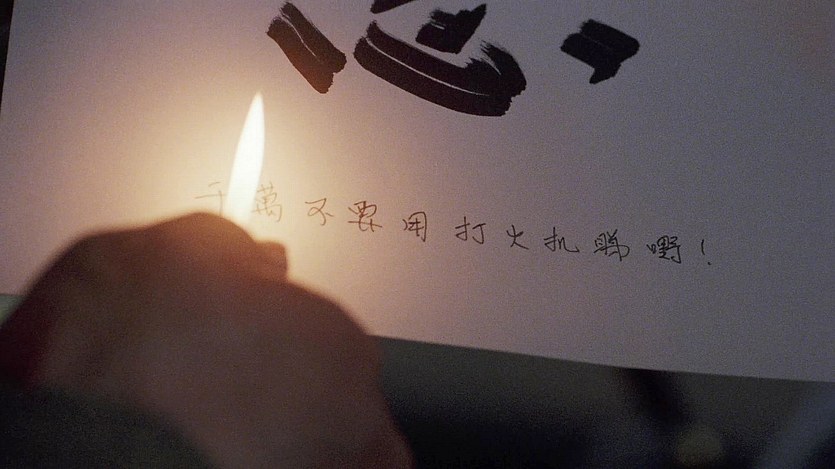 心
千萬不要用打火机睇嘢!